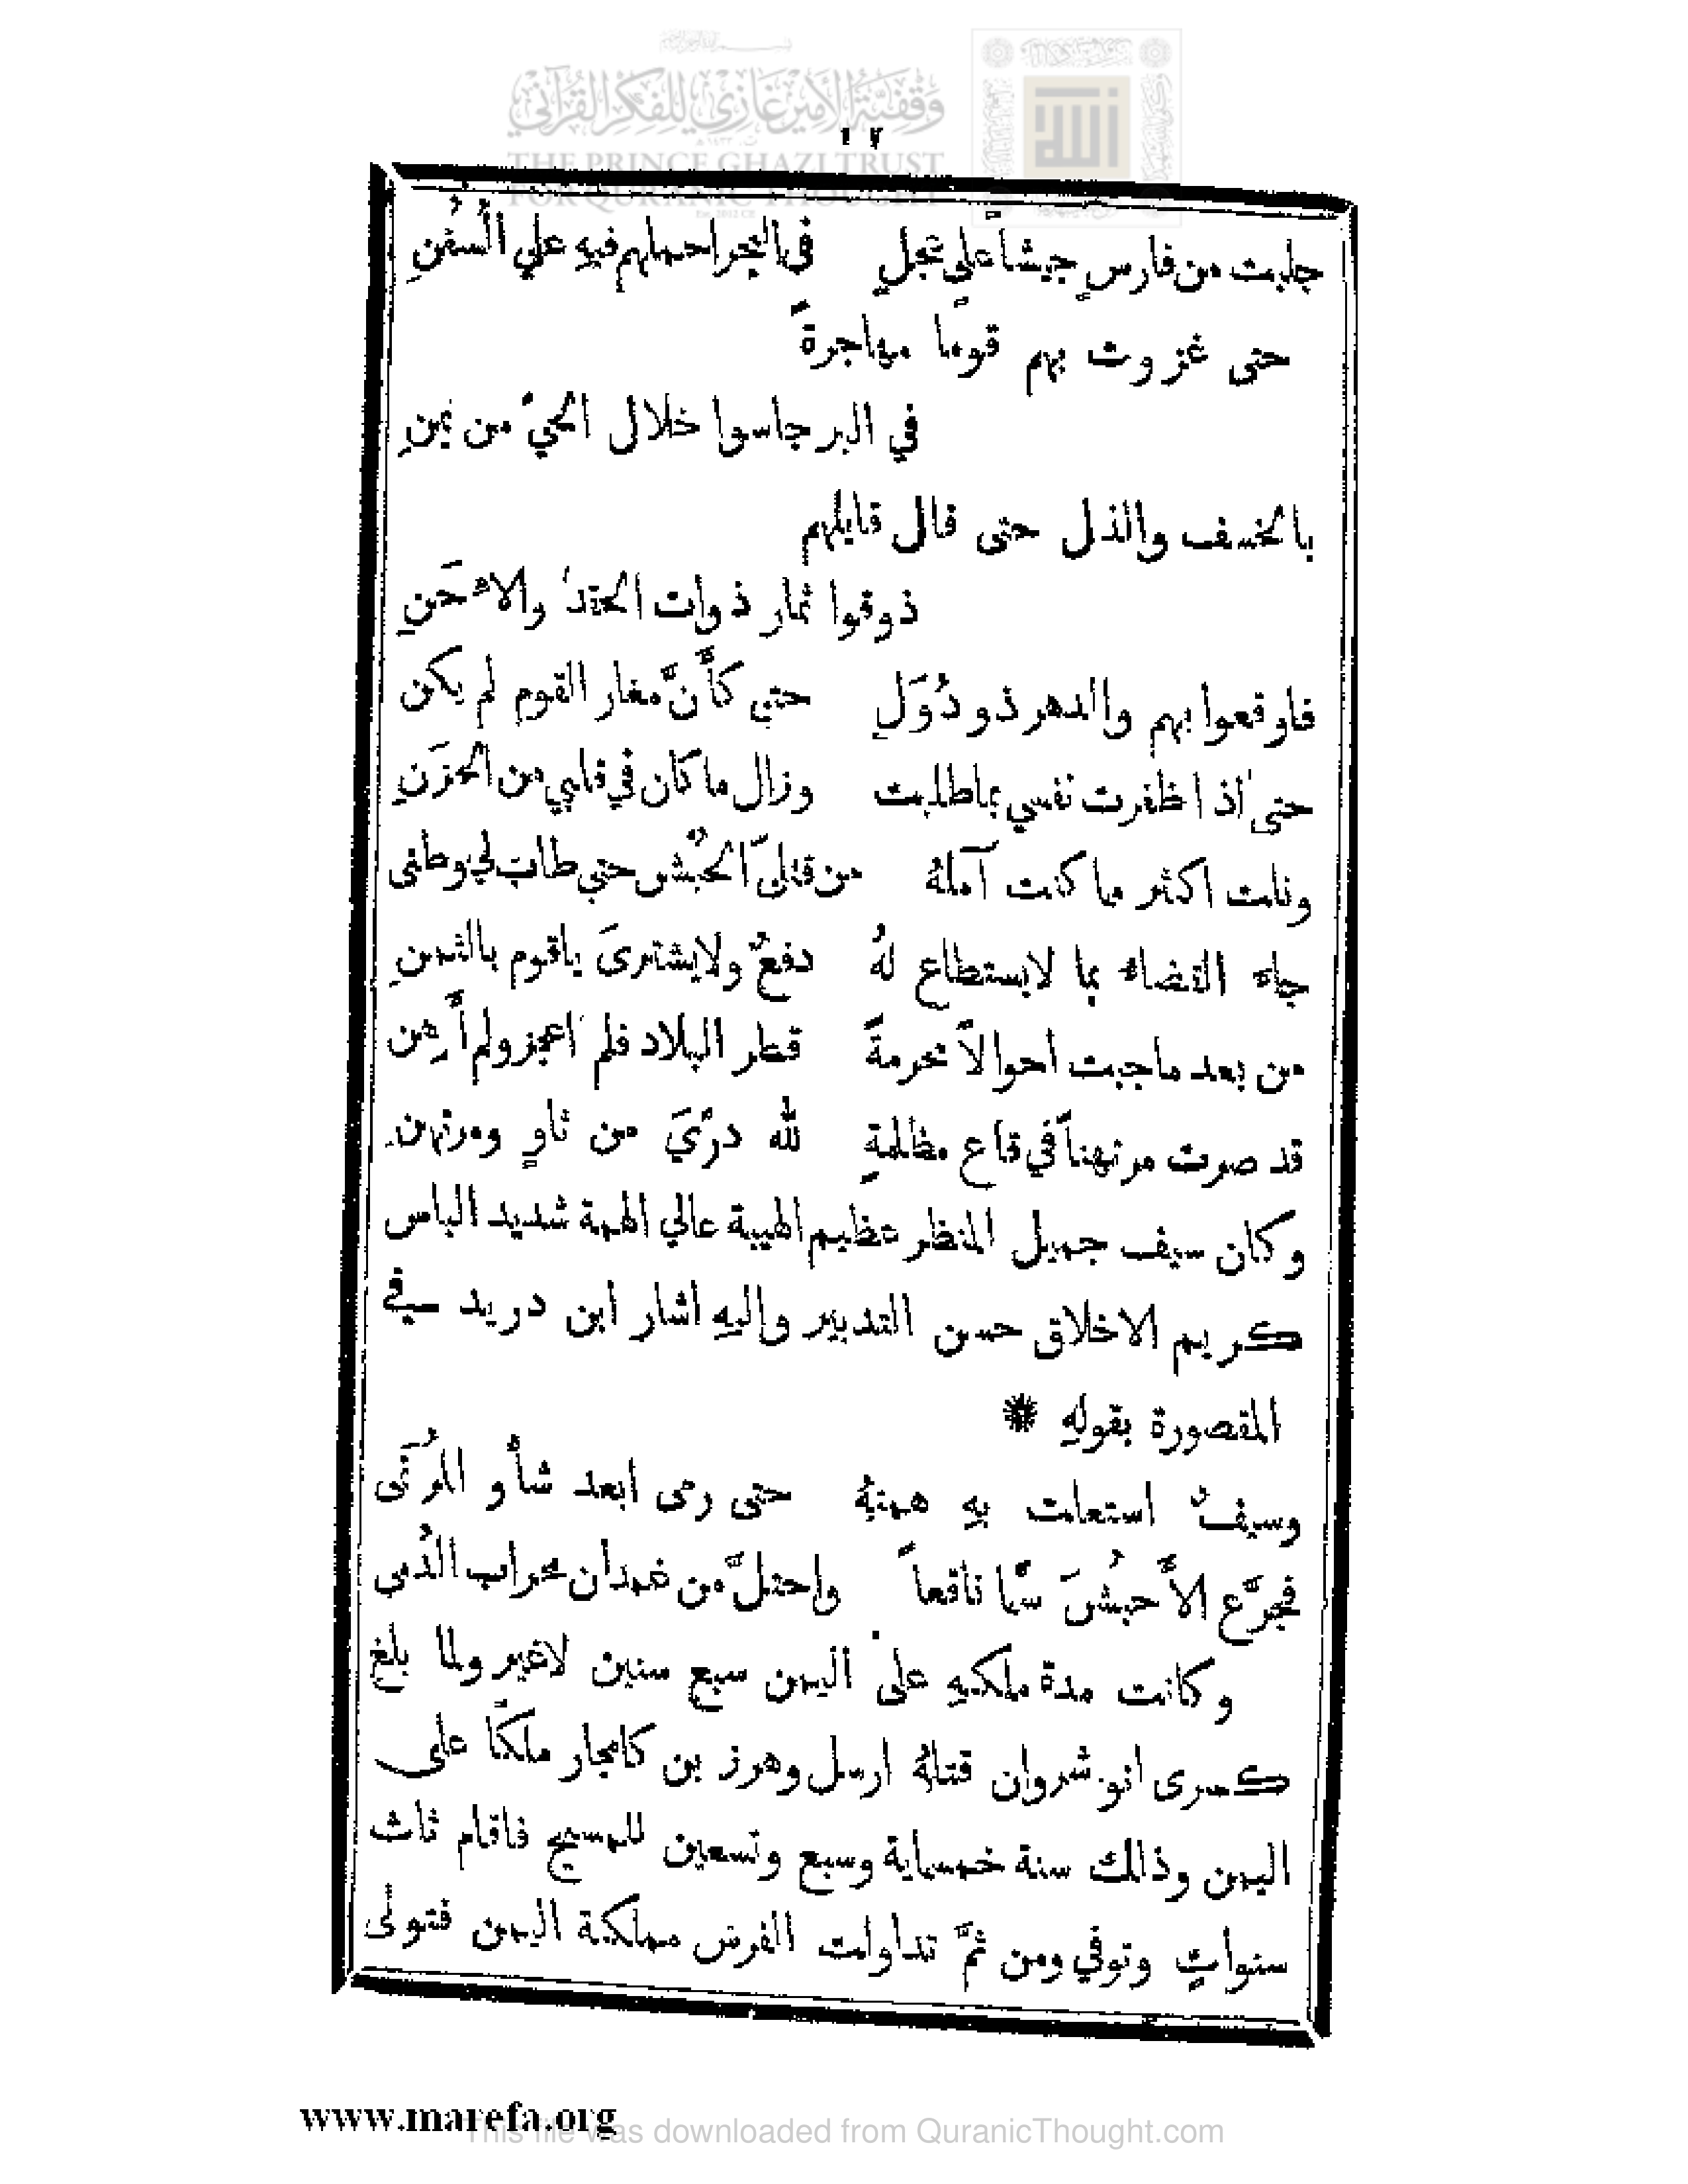 وقفية الأمير غازي للفكر القرآني
THE PRINCE GHAZI TRUST
FOR QURANIC THOUGHT
١٧
جلبت من فارسٍ جيشاً على عجلٍ في البحر احملهم فيهِ علي السُفُنِ
حتى غزوت بهم قومًا مهاجرةً
في البر جاسوا خلال الحيّ من يمنِ
بالخسف والذل حتى قال قايلهم
ذوقوا ثمار ذوات الحقد والاحَنِ
فاوقعوا بهم والدهر ذو دُوَلٍ حتي كأَنَّ مغار القوم لم يكن
حتى اذا ظفرت نفسي بما طلبت وزال ما كان في قلبي من الحزَنِ
ونلت اكثر ما كنت آملهُ من قتليَ الحُبْش حتي طاب لي وطني
جاء القضاء بما لا يستطاع لهُ دفعٌ ولا يشترىَ ياقوم بالثمنِ
من بعد ما جبت احوالاً تحرمةً قطر البلاد فلم اعجز ولم أَهِن
قد صرت مرتهناً في قاع مظلمةٍ لله درّيَ من ثاوٍ ومرتهن
وكان سيف جميل المنظر عظيم الهيبة عالي الهمة شديد الباس
كريم الاخلاق حسن التدبير واليهِ اشار ابن دريد في
المقصورة بقولهِ *
وسيفٌ استعلت بهِ همتهُ حتى رمى ابعد شأْو المُرتَمى
فجرَّع الأَحبُشَ سمًّا ناقعاً واحتلَّ من غمدان محراب الدُمى
وكانت مدة ملكهِ على اليمن سبع سنين لاغير ولما بلغ
كسرى انوشروان قتلهُ ارسل وهرز بن كامجار ملكًا على
اليمن وذلك سنة خمسماية وسبع وتسعين للمسيح فاقام ثلث
سنواتٍ وتوفي ومن ثمَّ تداولت الفرس مملكة اليمن فتولى
www.marefa.org
This file was downloaded from QuranicThought.com